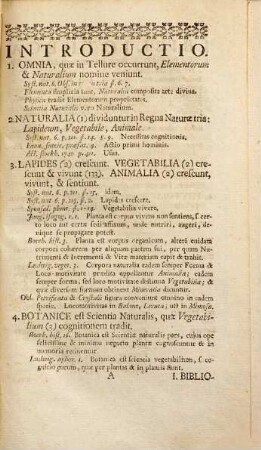 INTRODUCTIO.
1. OMNIA, quæ in Tellure occurrunt, Elementorum
& Naturalium nomine veniunt.
Syst. nat. 6. Obs. in f. 6. 7.
Elementa simplicia sunt, Naturalia composita arte divina.
Physica tradit Elementorum proprietates.
Scientia Naturalis vero Naturalium.
2. NATURALIA (1) dividuntur in Regna Naturæ tria:
Lapideum, Vegetabile, Animale.
Syst. nat. 6. p. 211. §. 14. 9. Necessitas cognitionis.
Faun. svecic. præfat. Actio primi hominis.
Act. stockh. 1740. p. 411. Usus.
3. LAPIDES (2) crescunt. VEGETABILIA (2) cres-
cunt & vivunt (133). ANIMALIA (2) crescunt,
vivunt, & sentiunt.
Syst. nat. 6. p. 211. §. 15. idem.
Syst. nat. 6. p. 219. §. 2. Lapides crescere.
Sponsal. plant. §. 1-14. Vegetabilia vivere.
Jung. isagog. 1. 1. Planta est corpus vivens non sentiens, f. certo
loco aut certæ sedi affixum, unde nutriri, augeri, de-
nique se propagare potest.
Boerh. hist. 3. Planta est corpus organicum, alteri cuidam
corpori cohærens per aliquam partem sui, per quam Nu-
trimenti & Incrementi & Vitæ materiam capit & trahit.
Ludwig. veget. 3. Corpora naturalia eadem semper Forma &
Loco-motivitate prædita appellantur Animalia; eadem
semper forma, sed loco motivitate destituta Vegetabilia; &
quæ diversam formam obtinent Mineralia dicuntur.
Obs. Petrificata & Crystalli figura conveniunt omnino in eadem
specie. Locomotivitas in Balano, Lernæa, uti in Mimosa.
4. BOTANICE est Scientia Naturalis, quæ Vegetabi-
lium (2) cognitionem tradit.
Boerh. hist. 16. Botanica est Scientiæ naturalis pars, cujus ope
felicissime & minimo negotio plantæ cognoscuntur & in
memoria retinentur.
Ludwig. aphor. 1. Botanica est scientia vegetabilium, f. co-
gnitio eorum, quæ per plantas & in plantis fiunt.
A I. BIBLIO-